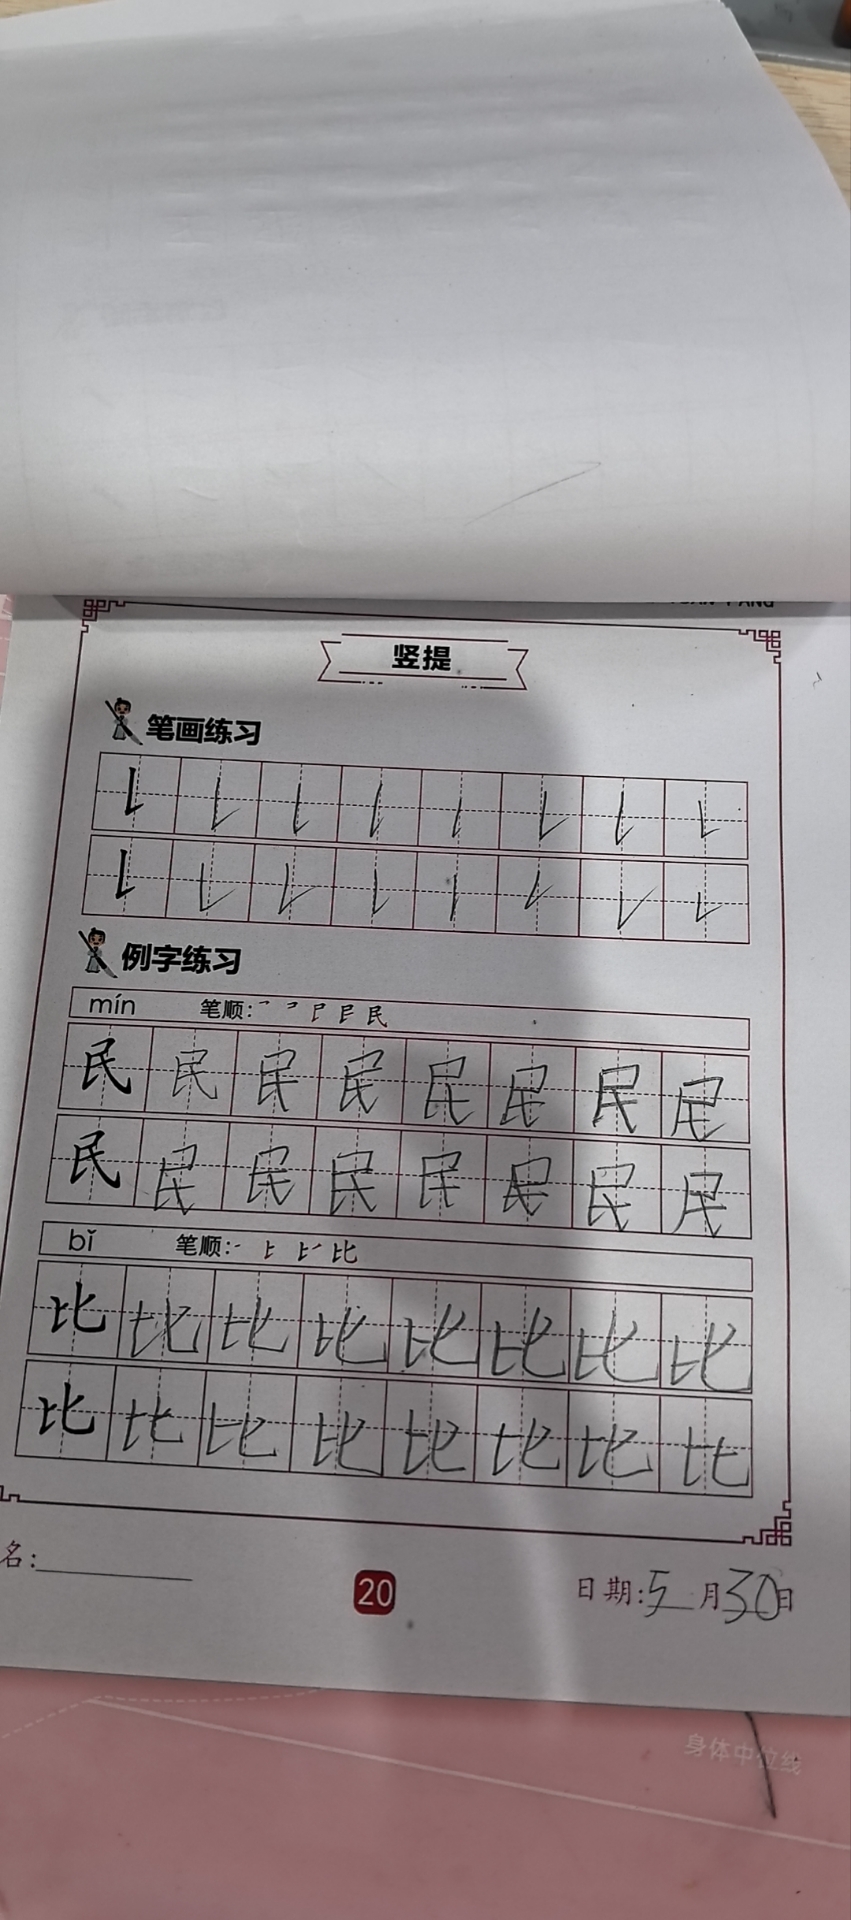 竖提
笔画练习
例字练习
mín 笔顺:
民 民 民 民 民 民 民 民
民 民 民 民 民 民 民 民
bǐ 笔顺:
比 比 比 比 比 比 比 比
比 比 比 比 比 比 比 比
名:
20
日期:5月30日
身体中位线